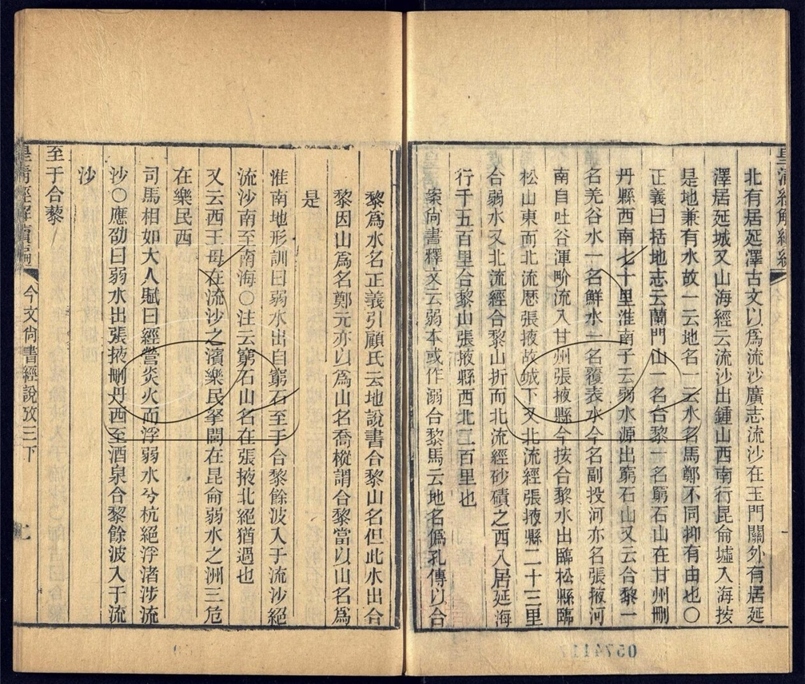 北有居延澤古文以爲流沙廣志流沙在玉門關外有居延
澤居延城又山海經云流沙出鍾山西南行昆侖墟入海按
是地兼有水故一云地名一云水名馬鄭不同抑有由也〇
正義曰括地志云蘭門山一名合黎一名窮石山在甘州刪
丹縣西南七十里淮南子云弱水源出窮石山又云合黎一
名羌谷水一名鮮水一名覆表水今名副投河亦名張掖河
南自吐谷渾畍流入甘州張掖縣今按合黎水出臨松縣臨
松山東而北流歷張掖故城下又北流經張掖縣二十三里
合弱水又北流經合黎山折而北流經砂磧之西入居延海
行千五百里合黎山張掖縣西北二百里也
案尙書釋文云弱本或作溺合黎馬云地名僞孔傳以合
黎爲水名正義引顧氏云地說書合黎山名但此水出合
黎因山爲名鄭元亦以爲山名喬樅謂合黎當以山名爲
是
淮南地形訓曰弱水出自窮石至于合黎餘波入于流沙絕
流沙南至南海〇注云窮石山名在張掖北絕猶過也
又云西王母在流沙之濱樂民拏閭在昆侖弱水之洲三危
在樂民西
司馬相如大人賦曰經營炎火而浮弱水兮杭絕浮渚涉流
沙〇應劭曰弱水出張掖刪丹西至酒泉合黎餘波入于流
沙
至于合黎
皇淸經解續編
今文尙書經說攷三下